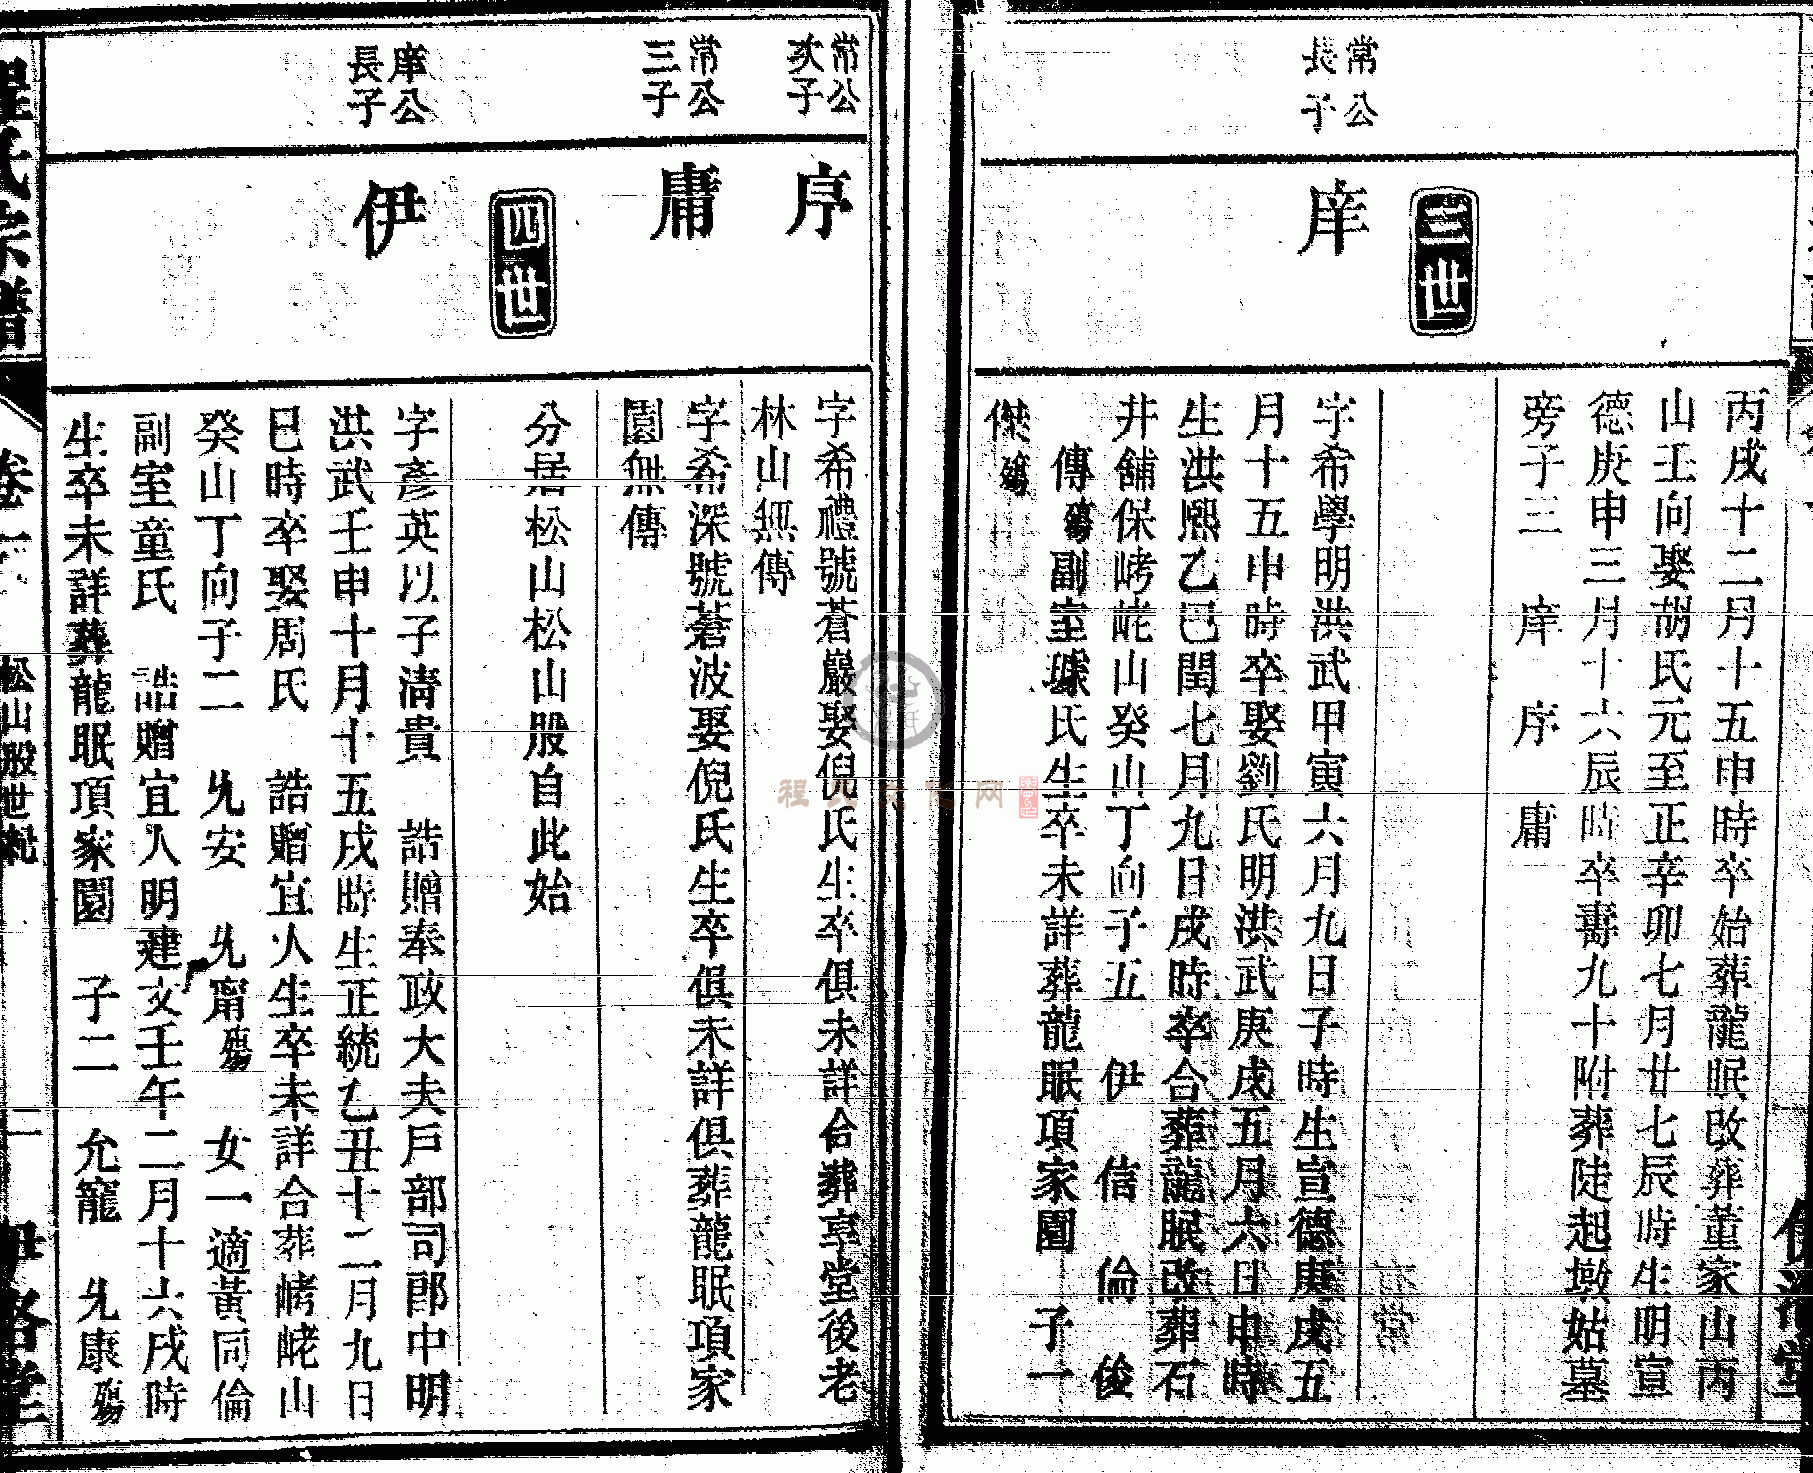 丙戌十二月十五申時卒始葬龍眠改葬董家山丙
山壬向娶胡氏元至正辛卯七月廿七辰時生明宣
德庚申三月十六辰時卒壽九十附葬陡起墩姑墓
旁子三 庠 序 庸
三世
常公
長子
庠
字希學明洪武甲寅六月九日子時生宣德庚戌五
月十五申時卒娶劉氏明洪武庚戌五月六日申時
生洪熙乙巳閏七月九日戌時卒合葬龍眠改葬石
井舖保峔峔山癸山丁向子五 伊 信 倫 俊
傑殤
傳殤副室璩氏生卒未詳葬龍眠項家園 子一
常公
次子
序
字希禮號蒼巖娶倪氏生卒俱未詳合葬享堂後老
林山無傳
常公
三子
庸
字希深號蒼波娶倪氏生卒俱未詳俱葬龍眠項家
園無傳
分居松山松山股自此始
四世
庠公
長子
伊
字彥英以子清貴 誥贈奉政大夫戶部司郎中明
洪武壬申十月十五戌時生正統乙丑十二月九日
巳時卒娶周氏 誥贈宜人生卒未詳合葬峔峔山
癸山丁向子二 允安 允甯殤 女一適黃同倫
副室童氏 誥贈宜人明建文壬午二月十六戌時
生卒未詳葬龍眠項家園 子二 允寵 允康殤
程氏宗譜
卷一
松山股世紀
一
伊洛堂